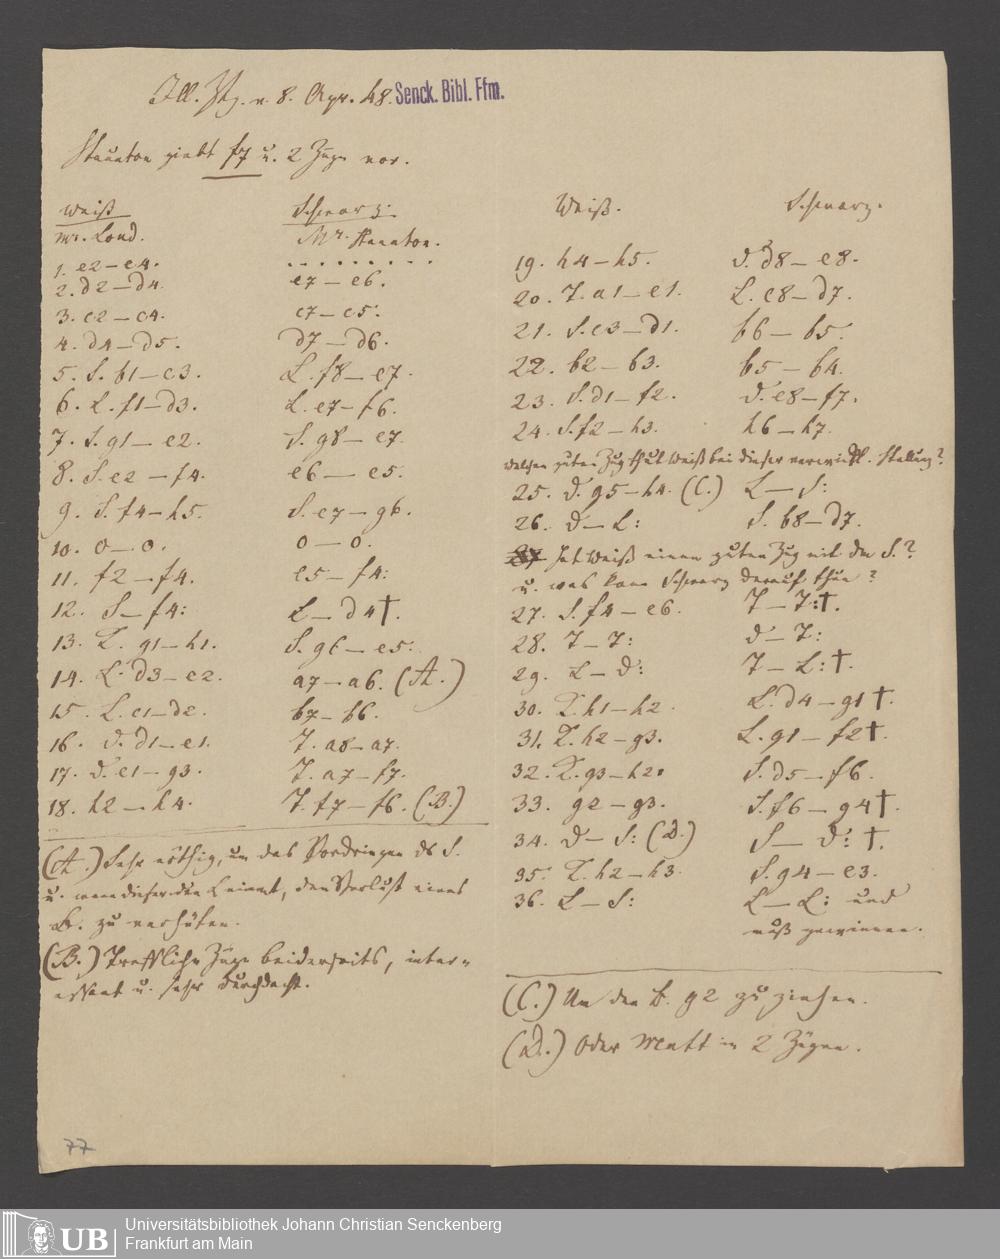 Ill. Ztg. v. 8. Apr. 48. Senck. Bibl. Ffm.
Staunton giebt f7 u. 2 Züge vor.
Weiß Schwarz.
Mr. Loud. Mr. Staunton.
1. e2–e4. . . . . . . . .
2. d2–d4. e7–e6.
3. c2–c4. c7–c5.
4. d4–d5. d7–d6.
5. S. b1–c3. L. f8–e7.
6. L. f1–d3. L. e7–f6.
7. S. g1–e2. S. g8–e7.
8. S. e2–f4. e6–e5.
9. S. f4–h5. S. e7–g6.
10. o–o. o–o.
11. f2–f4. e5–f4:
12. S–f4: L–d4†.
13. K. g1–h1. S. g6–e5.
14. L. d3–e2. a7–a6. (A.)
15. L. c1–d2. b7–b6.
16. D. d1–e1. T. a8–a7.
17. D. e1–g3. T. a7–f7.
18. h2–h4. T. f7–f6. (B.)
(A.) Sehr nöthig, um das Vordringen ds S.
u. wenn dieser den L nimmt, den Verlust eines
B. zu verhüten.
(B.) Treffliche Züge beiderseits, inter-
essant u. sehr durchdacht.
Weiß. Schwarz.
19. h4–h5. D. d8–e8.
20. T. a1–e1. L. c8–d7.
21. S. c3–d1. b6–b5.
22. b2–b3. b5–b4.
23. S. d1–f2. D. e8–f7.
24. S. f2–h3. h6–h7.
Welchen guten Zug thut Weiß bei dieser verwickl. Stellung?
25. D. g5–h4. (C.) L–S:
26. D–L: S. b8–d7.
Hat Weiß einen guten Zug mit dem S.?
u. was kann Schwarz darauf thun?
27. S. f4–e6. T–T:†.
28. T–T: D–T:
29. L–D: T–L:†.
30. K. h1–h2. L. d4–g1†.
31. K. h2–g3. L. g1–f2†.
32. K. g3–h2. S. d5–f6.
33. g2–g3. S. f6–g4†.
34. D–S: (D.) S–D:†.
35. K. h2–h3. S. g4–e3.
36. L–S: L–L: und
muß gewinnen.
(C.) Um den B. g2 zu ziehen.
(D.) Oder Matt in 2 Zügen.
77
UB
Universitätsbibliothek Johann Christian Senckenberg
Frankfurt am Main